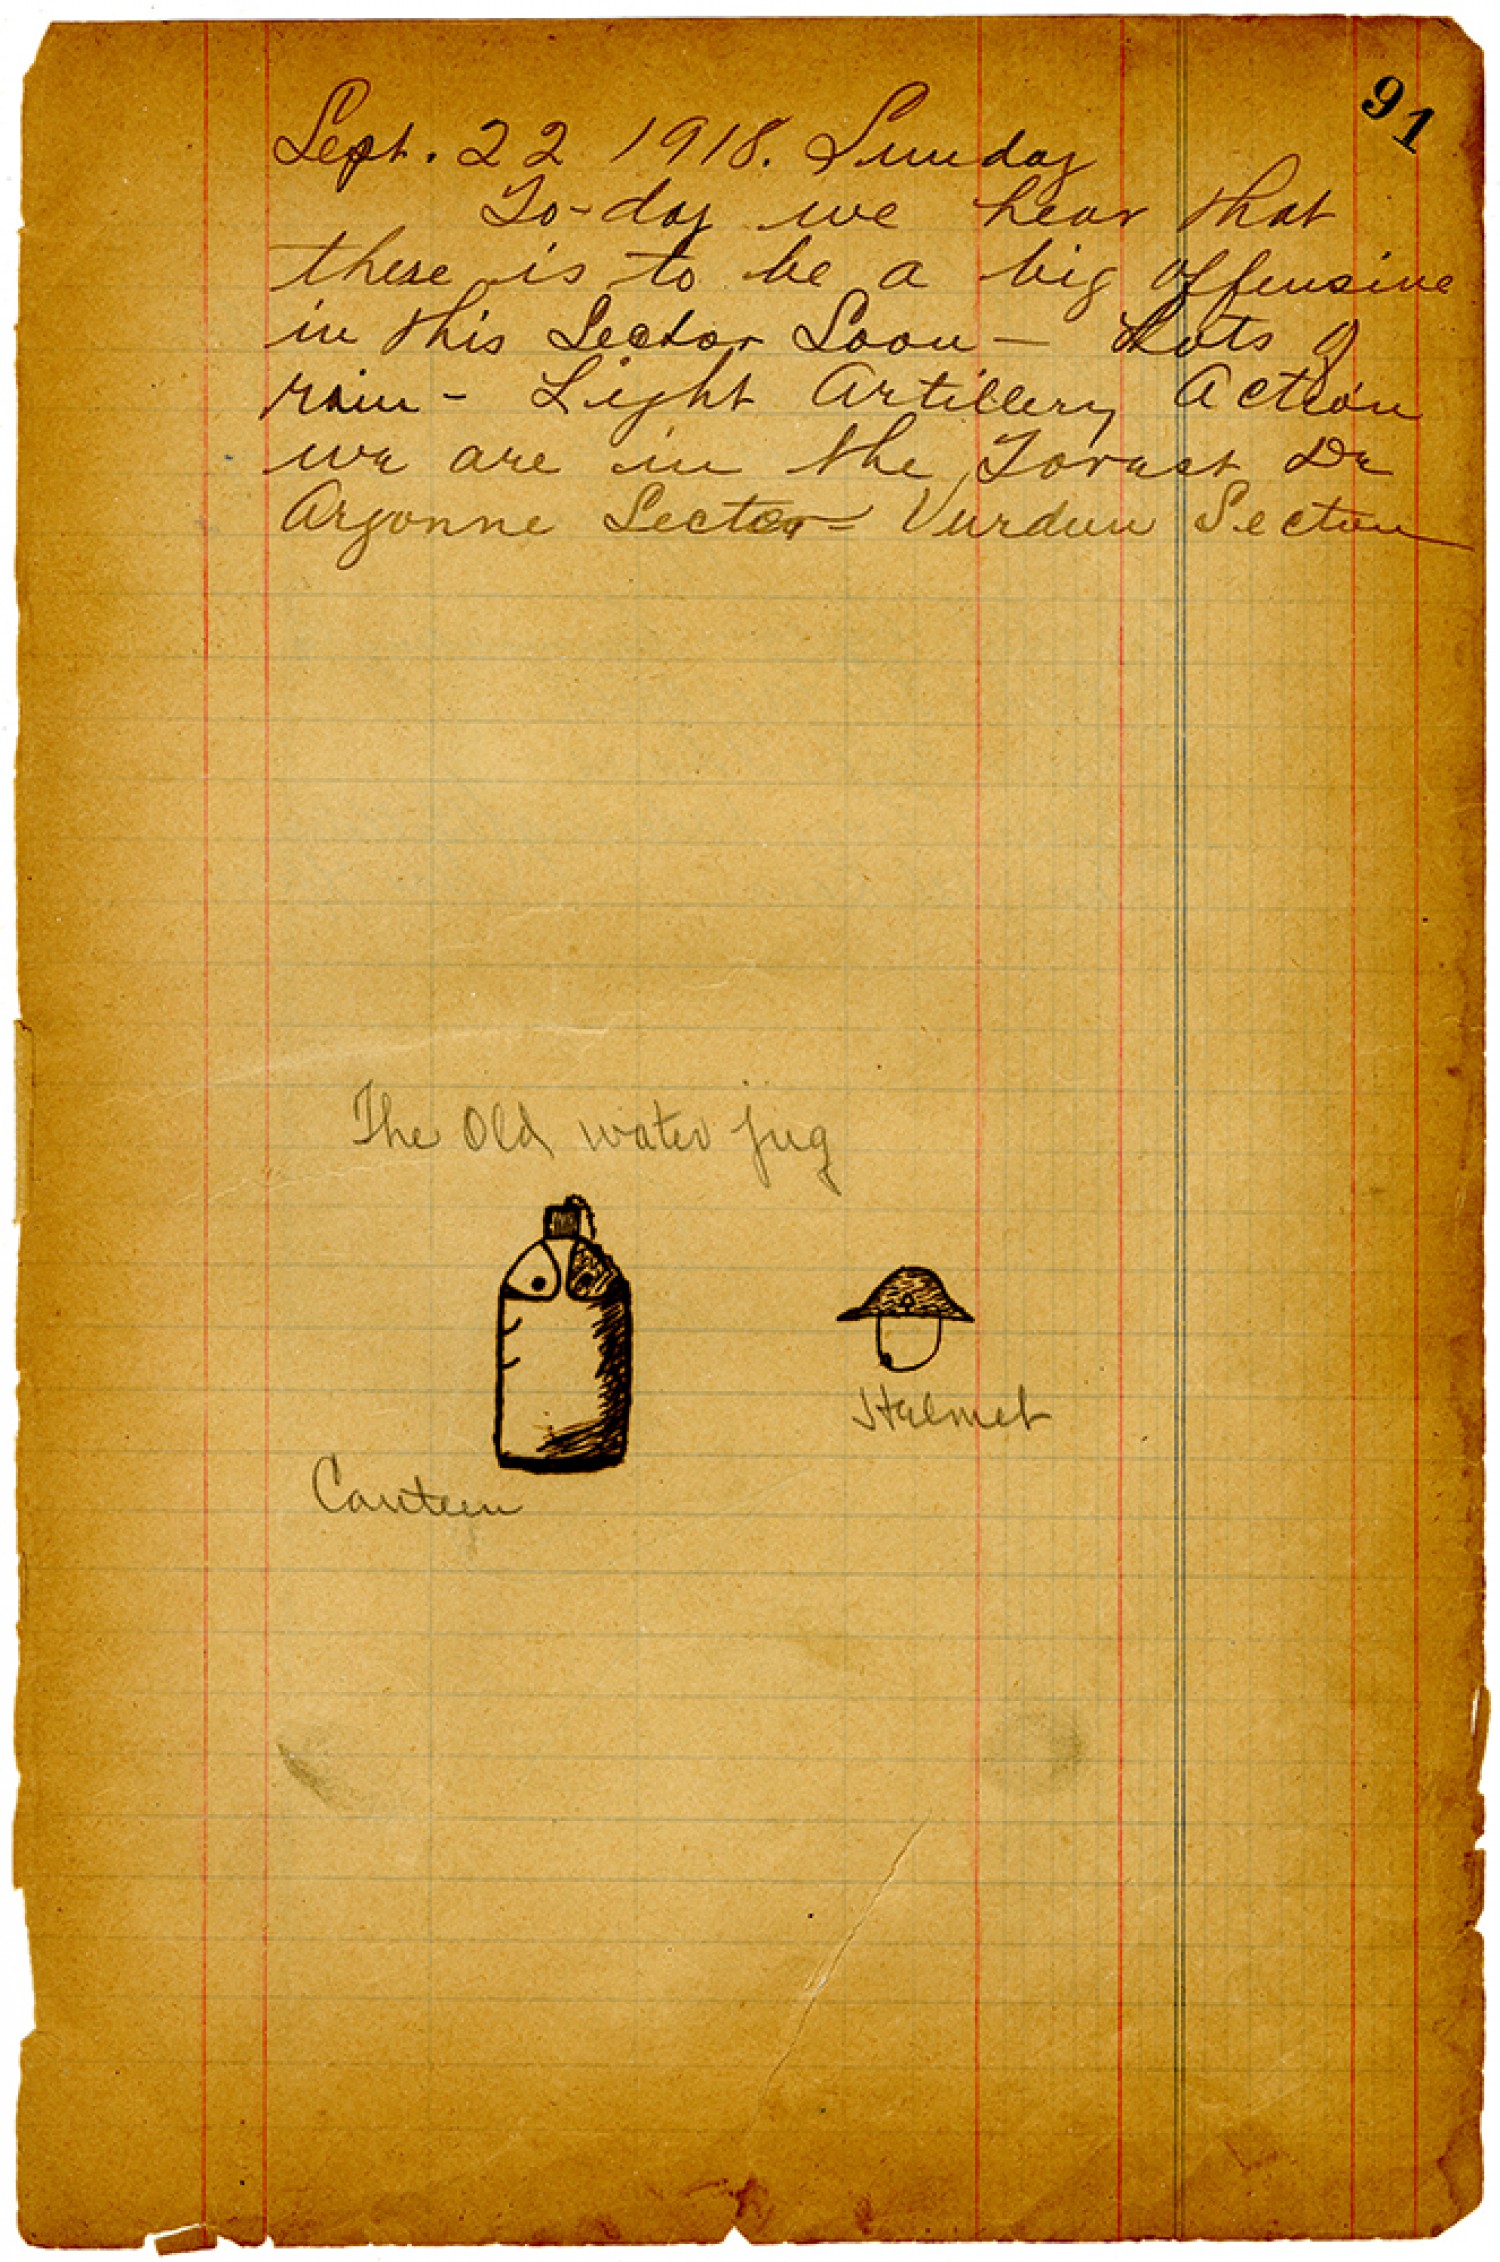 91
Sept. 22 1918. Sunday
To-day we hear that
there is to be a big offensive
in this Sector Soon - Lots of
rain - Light Artillery Action
we are in the Forest De
Argonne Sector - Verdun Section
The Old water jug
Helmet
Canteen